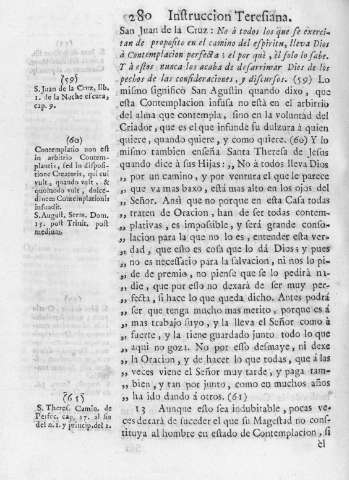 280 Instruccion Teresiana.
San Juan de la Cruz: No à todos los que se exerci-
tan de proposito en el camino del espiritu, lleva Dios
à Contemplacion perfecta: el por què, èl solo lo sabe.
Y à estos nunca los acaba de desarrimar Dios de los
pechos de las consideraciones, y discursos. (59) Lo
mismo significò San Agustin quando dixo, que
esta Contemplacion infusa no està en el arbitrio
del alma que contempla, sino en la voluntad del
Criador, que es el que infunde su dulzura à quien
quiere, quando quiere, y como quiere. (60) Y lo
mismo tambien enseña Santa Theresa de Jesus
quando dice à sus Hijas: ,, No à todos lleva Dios
,, por un camino, y por ventura el que le parece
,, que va mas baxo, està mas alto en los ojos del
,, Señor. Ansi que no porque en esta Casa todas
,, traten de Oracion, han de ser todas contem-
,, plativas, es impossible, y serà grande conso-
,, lacion para la que no lo es, entender esta ver-
,, dad, que esto es cosa que lo dà Dios; y pues
,, no es necessario para la salvacion, ni nos lo pi-
,, de de premio, no piense que se lo pedirà na-
,, die, que por esso no dexarà de ser muy per-
,, fecta, si hace lo que queda dicho. Antes podrà
,, ser que tenga mucho mas merito, porque es à
,, mas trabajo suyo, y la lleva el Señor como à
,, fuerte, y la tiene guardado junto todo lo que
,, aqui no goza. No por esso desmaye, ni dexe
,, la Oracion, y de hacer lo que todas, que à las
,, veces viene el Señor muy tarde, y paga tam-
,, bien, y tan por junto, como en muchos años
,, ha ido dando à otros. (61)
13 Aunque esto sea indubitable, pocas ve-
ces dexarà de suceder el que su Magestad no cons-
tituya al hombre en estado de Contemplacion, si
èl
(59)
S. Juan de la Cruz, lib.
1. de la Noche escura,
cap. 9.
(60)
Contemplatio non est
in arbitrio Contem-
plantis, sed in disposi-
tione Creatoris, qui cui
vult, quando vult, &
quomodo vult, dulce-
dinem Contemplationis
infundit.
S. August. Serm. Dom.
15. post Trinit. post
medium.
(61)
S. Theres. Camin. de
Perfec. cap. 17. al fin
del n. 1. y princip. del 2.